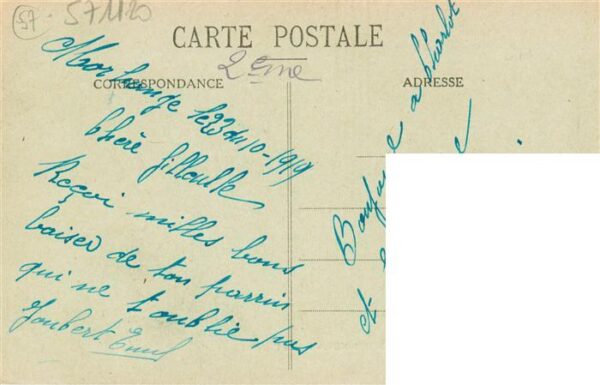 57
57120
CARTE POSTALE
2ème
CORRESPONDANCE
ADRESSE
Morhange le 23 du 10-1919
Chère filleulle
Reçoi milles bons
baiser de ton parrin
qui ne t'oublie pas
Joubert
a Charlot